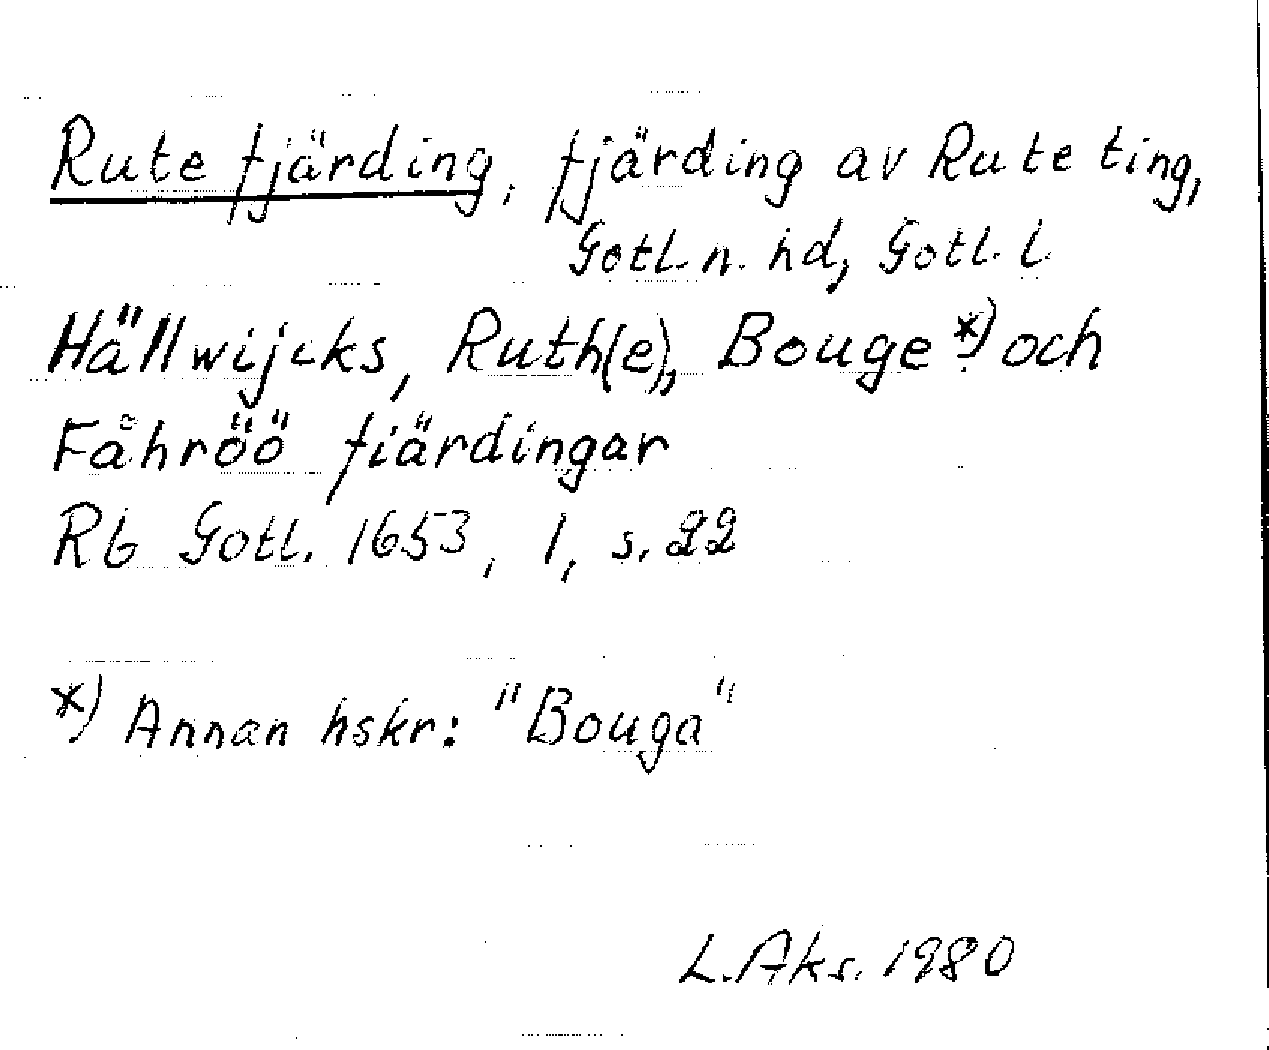 Rute fjärding, fjärding av Rute ting,
Gotl. n. hd, Gotl. l.
Hällwijcks, Ruth(e), Bouge *) och
Fåhröö fiärdingar
Rb Gotl. 1653, 1, s. 22
*) Annan hskr: "Bouga"
L. Aks. 1980